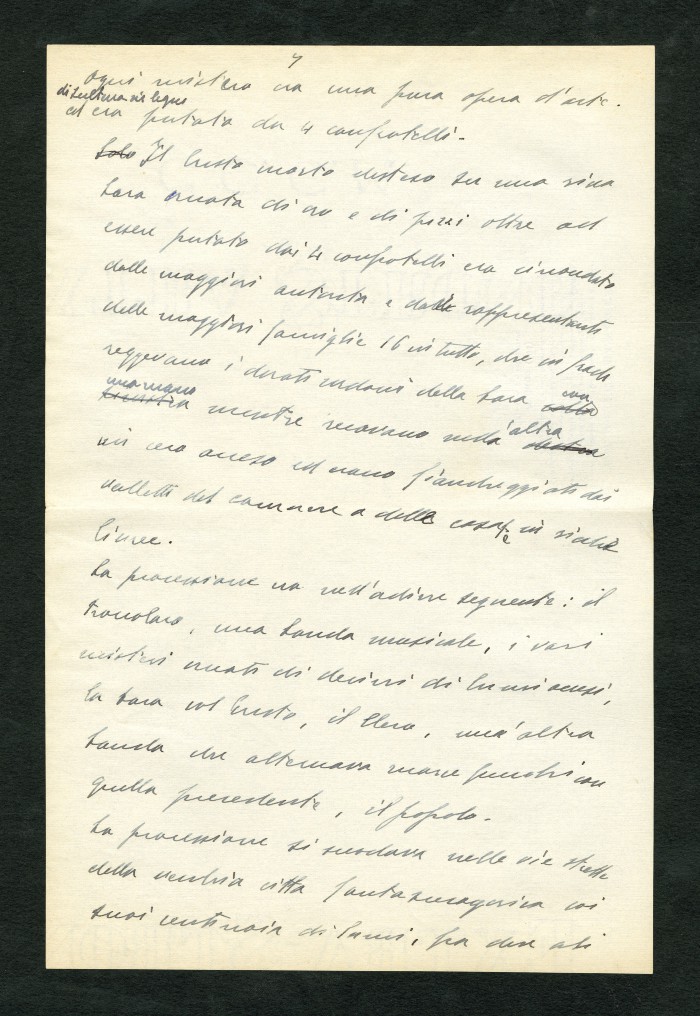 7
Ogni mistero era una pura opera d'arte.
di scultura in legno
ed era portato da 4 confratelli.
Solo Il Cristo morto disteso su una ricca
bara ornata di oro e di pizzi oltre ad
essere portato dai 4 confratelli era circondato
dalle maggiori autorità e dalle rappresentanti
delle maggiori famiglie 16 in tutto, che in frach
reggevano i dorati cordoni della bara con
una mano mentre recavano nell'altra destra
un cero acceso ed erano fiancheggiati dai
valletti del comune e delle casate in ricche
livree.
La processione era nell'ordine seguente: il
troccolaro, una banda musicale, i vari
misteri ornati di decine di lumi accesi,
la bara col Cristo, il Clero, un'altra
banda che alternava marce funebri con
quella precedente, il popolo.
La processione si snodava nelle vie strette
della vecchia città fantasmagorica coi
suoi centinaia di lumi, fra due ali